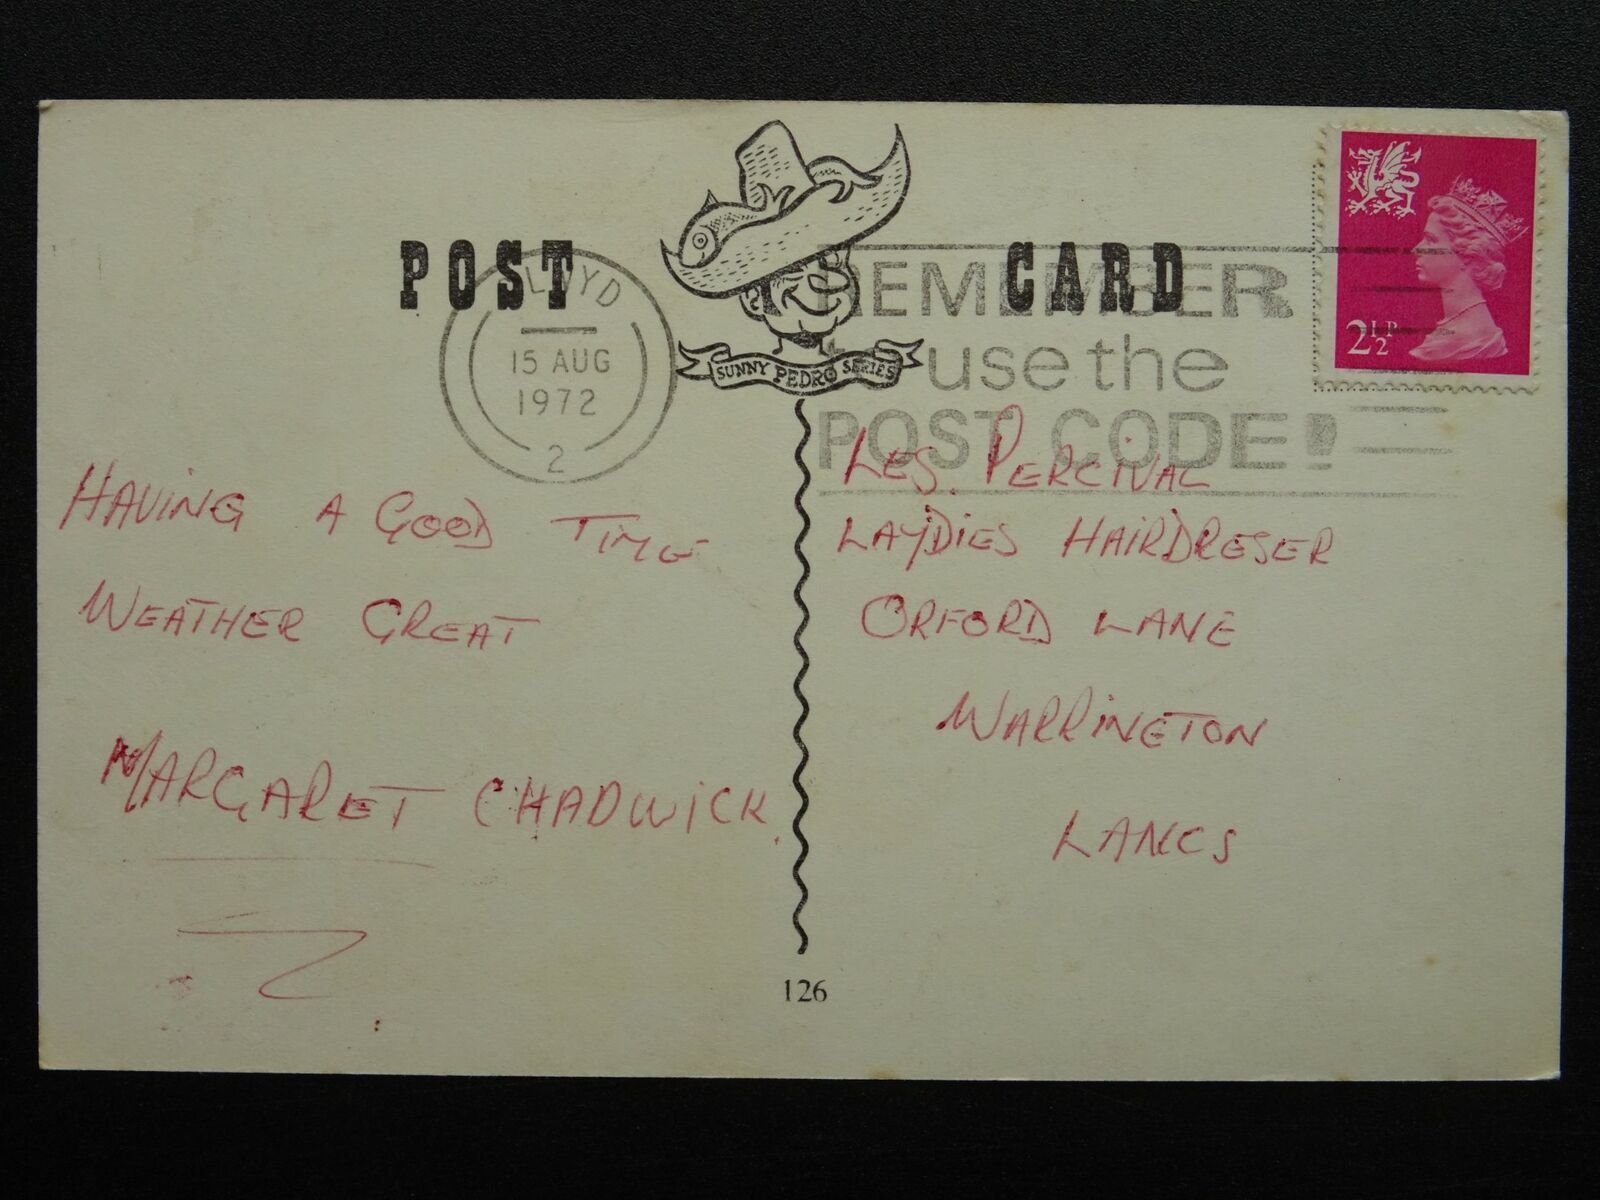 POST CARD
SUNNY PEDRO SERIES
15 AUG
1972
2
REMEMBER
to use the
POST CODE!
2½P
HAVING A GOOD TIME
WEATHER GREAT
MARGARET CHADWICK.
LES. PERCIVAL
LAYDIES HAIRDRESER
ORFORD LANE
WARRINGTON
LANCS
126